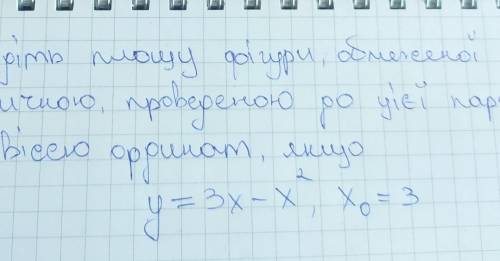 діть площу фігури, обмеженої
ичною, проведеною до цієї пар
віссю ординат, якщо
y = 3x - x², x₀ = 3